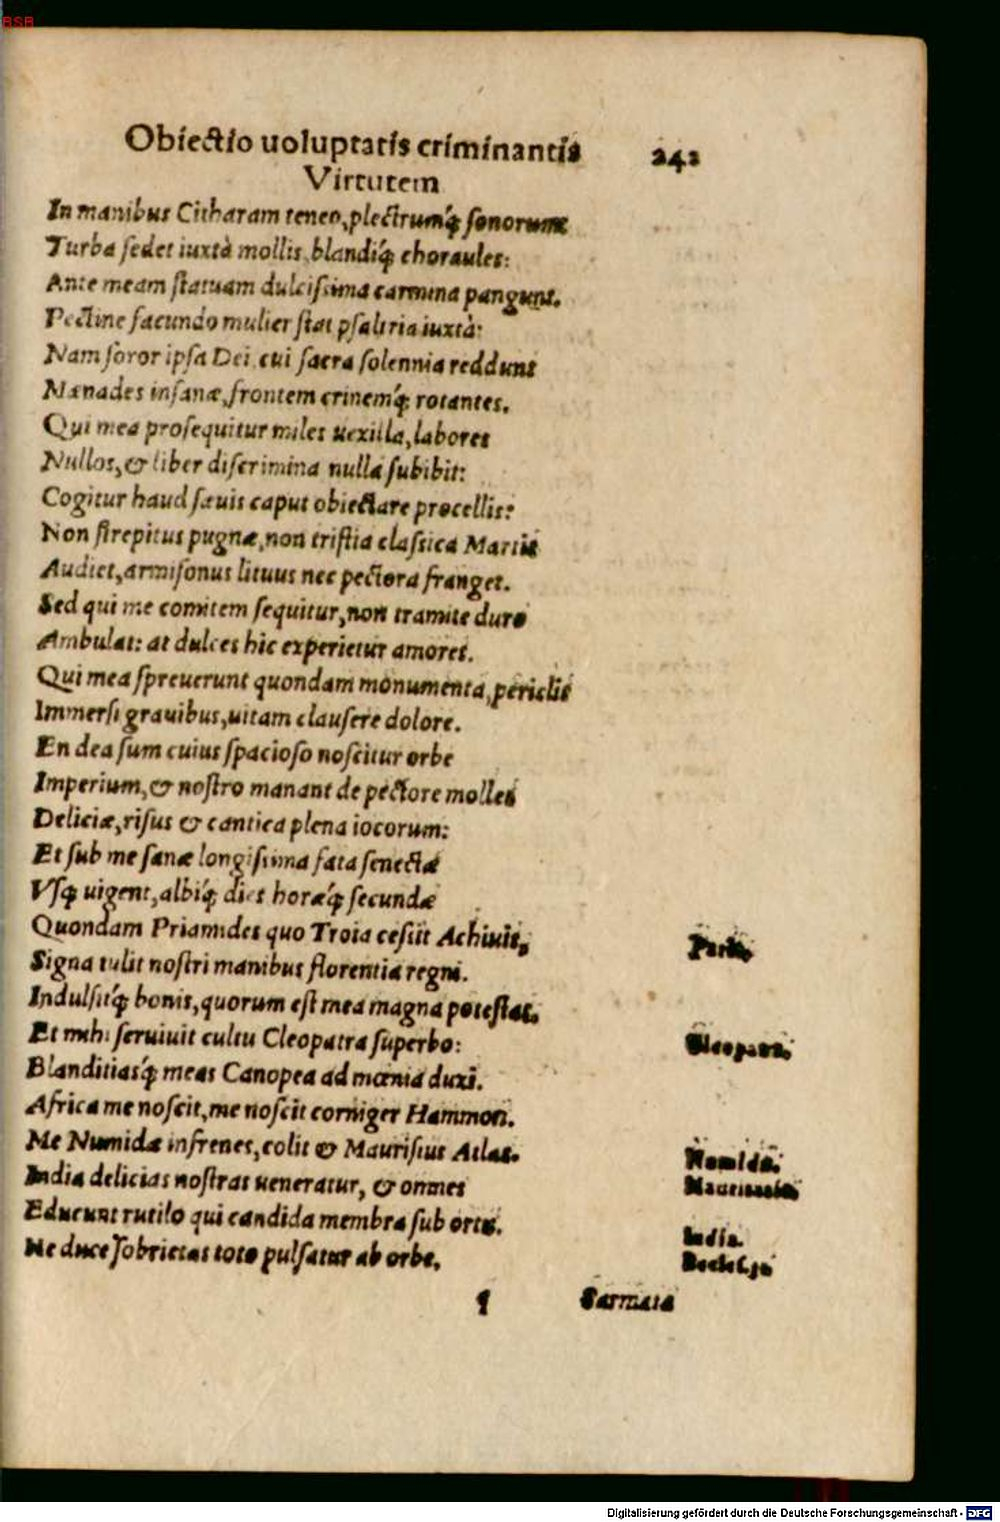 BSB
Obiectio uoluptatis criminantis 242
Virtutem
In manibus Citharam teneo, plectrumq́; sonorum
Turba sedet iuxtà mollis, blandiq́; choraules:
Ante meam statuam dulcissima carmina pangunt.
Pectine facundo mulier stat psaltria iuxtà:
Nam soror ipsa Dei, cui sacra solennia reddunt
Mænades insanæ, frontem crinemq́; rotantes.
Qui mea prosequitur miles uexilla, labores
Nullos, & liber discrimina nulla subibit:
Cogitur haud sæuis caput obiectare procellis:
Non strepitus pugnæ, non tristia classica Martis
Audiet, armisonus lituus nec pectora franget.
Sed qui me comitem sequitur, non tramite duro
Ambulat: at dulces hic experietur amores.
Qui mea spreuerunt quondam monumenta, periclis
Immersi grauibus, uitam clausere dolore.
En dea sum cuius spacioso noscitur orbe
Imperium, & nostro manant de pectore molles
Deliciæ, risus & cantica plena iocorum:
Et sub me sanæ longissima fata senectæ
Vsq; uigent, albiq́; dies horæq́; secundæ
Quondam Priamides quo Troia cessit Achiuis,
Signa tulit nostri manibus florentia regni.
Indulsitq́; bonis, quorum est mea magna potestas.
Et mihi seruiuit cultu Cleopatra superbo:
Blanditiasq́; meas Canopea ad mœnia duxi.
Africa me noscit, me noscit corniger Hammon.
Me Numidæ infrenes, colit & Maurisius Atlas.
India delicias nostras ueneratur, & omnes
Educunt rutilo qui candida membra sub ortu.
Me duce sobrietas toto pulsatur ab orbe.
Paris.
Cleopatra.
Numidæ.
India.
Eccles. 10
Sarmata
Digitalisierung gefördert durch die Deutsche Forschungsgemeinschaft - DFG